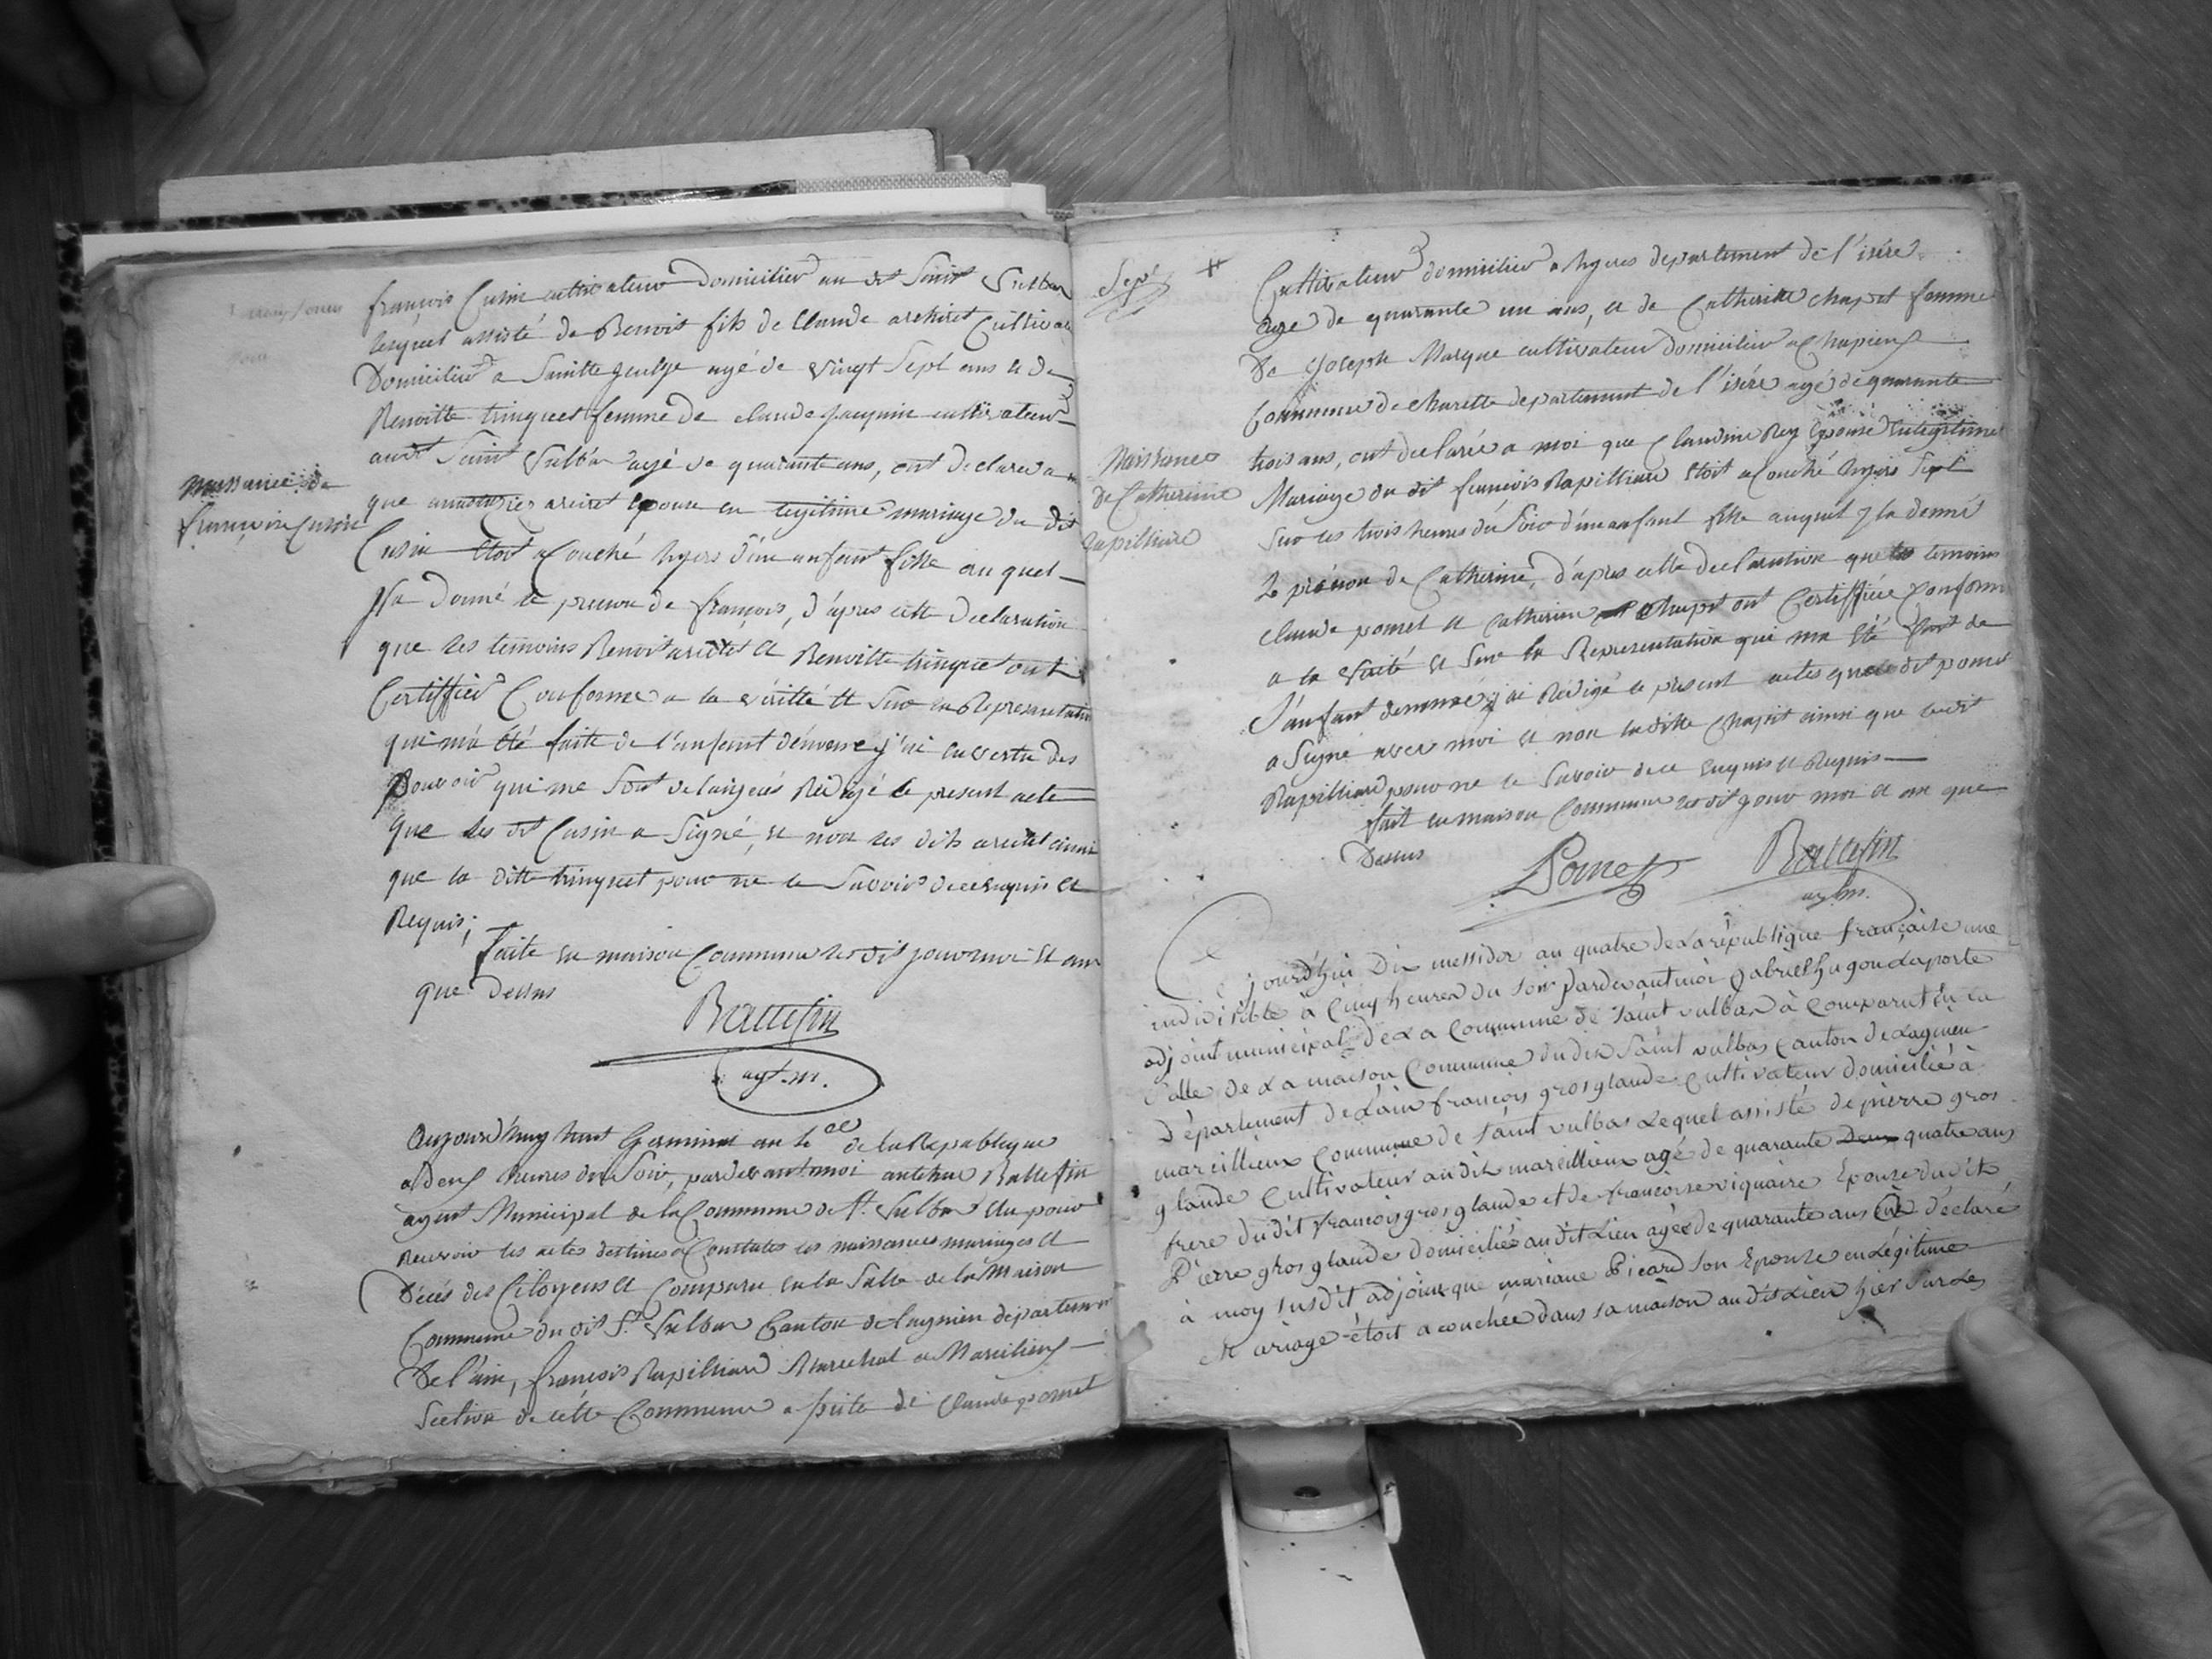 Naissance de
françoise Cusin
françois Cusin cultivateur domicilier au dit Saint Vulbas
lesquel assisté de Benoit fils de Claude archiret Cultivat
Domicilier a Sainte Jeulye agé de vingt Sept ans et de
Benoitte trinquet femme de claude jacquin cultivateur
audit Saint Vulbas agé de quarante ans, ont declaré a m
que ariret epouse en legitime mariage du dit
Cusin etoit acouché hyers d'un anfant fille au quel
Ila donné le prenom de françois, d'apres cette declaration
que les temoins Benoit ariret et Benoitte trinquet ont
Certiffier Conforme a la véritté et Sur la Representation
qui m'a été faite de l'anfant dénomé j'ai en vertu des
pouvoir qui me Sont delanguée Rédigé le present acte
que les dit Cusin a Signé, et non les dits ariret ainsi
que la ditte trinquet pour ne le Savoir de ce enquis et
Requis;
Faite en maison Commune les dit jour moi et an
que dessus
Ballefin
agt. m.
Aujourd'huy huit Germinal an 4 de la Republique
a deux heures du Soir, pardevant moi antelme Ballefin
agent Municipal de la Commune de St. Vulbas elu pour
recevoir les actes destines a Constater les naissances mariages et
Décés des Citoyens et Comparu en la Salle de la Maison
Commune du dit St. Vulbas Canton de lagnieu departemen
De l'ain, françois Rapilliard Marechal a Marcilieux
Section de cette Commune a siste de Claude pomet
Sept
Cultivateur domicilier a hyeres departement de l'isére
age de quarante un ans, et de Catherine chapit femme
De Joseph Marque cultivateur domicilier a Chapieux
Commune de Charette departement de l'isére agé de quarante
Naissance
de Catherine
rapilliard
trois ans, ont declarée a moi que Claudine Rey Epouse en legitime
Mariage du dit françois Rapilliard etoit acouché hyers Sept
Sur les trois heures du Soir d'un anfant fille auquel Ila donné
le prénom de Catherine, d'apres cette declaration que les temoins
claude pomet et Catherine chapit ont Certiffiée Conforme
a la verité et Sur la Representation qui ma été fait de
l'anfant denomé j'ai Rédigé le present actes que le dit pomet
a Signé avec moi et non ladite Chapit ainsi que ledit
Rapilliard pour ne le Savoir de ce enquis et Requis
fait en maison Commune les dit jour moi et an que
Dessus
Pomet
Ballefin
ag. m.
Ce jourd'hui Dix messidor an quatre de La république française une
indivisible à Cinq heures du soir pardevant moi gabriel hugon Laporte
adjoint municipal de La Commune de saint vulbas à comparut en la
salle de La maison Commune dudit saint vulbas canton de Lagnieu
Département de L'ain françois gros glaude cultivateur domicilié à
marcillieux Commune de saint vulbas Lequel assisté de pierre gros
glaude Cultivateur audit marcillieux agé de quarante deux quatre ans
frere dudit françois gros glaude et de françoise viquaire Epouse dudit
Pierre gros glaude domiciliés audit Lieu agée de quarante ans à déclaré
à moy susdit adjoint que mariane Picard son Epouse en Légitime
Mariage étoit acouchée dans sa maison audit Lieu hier sur Les